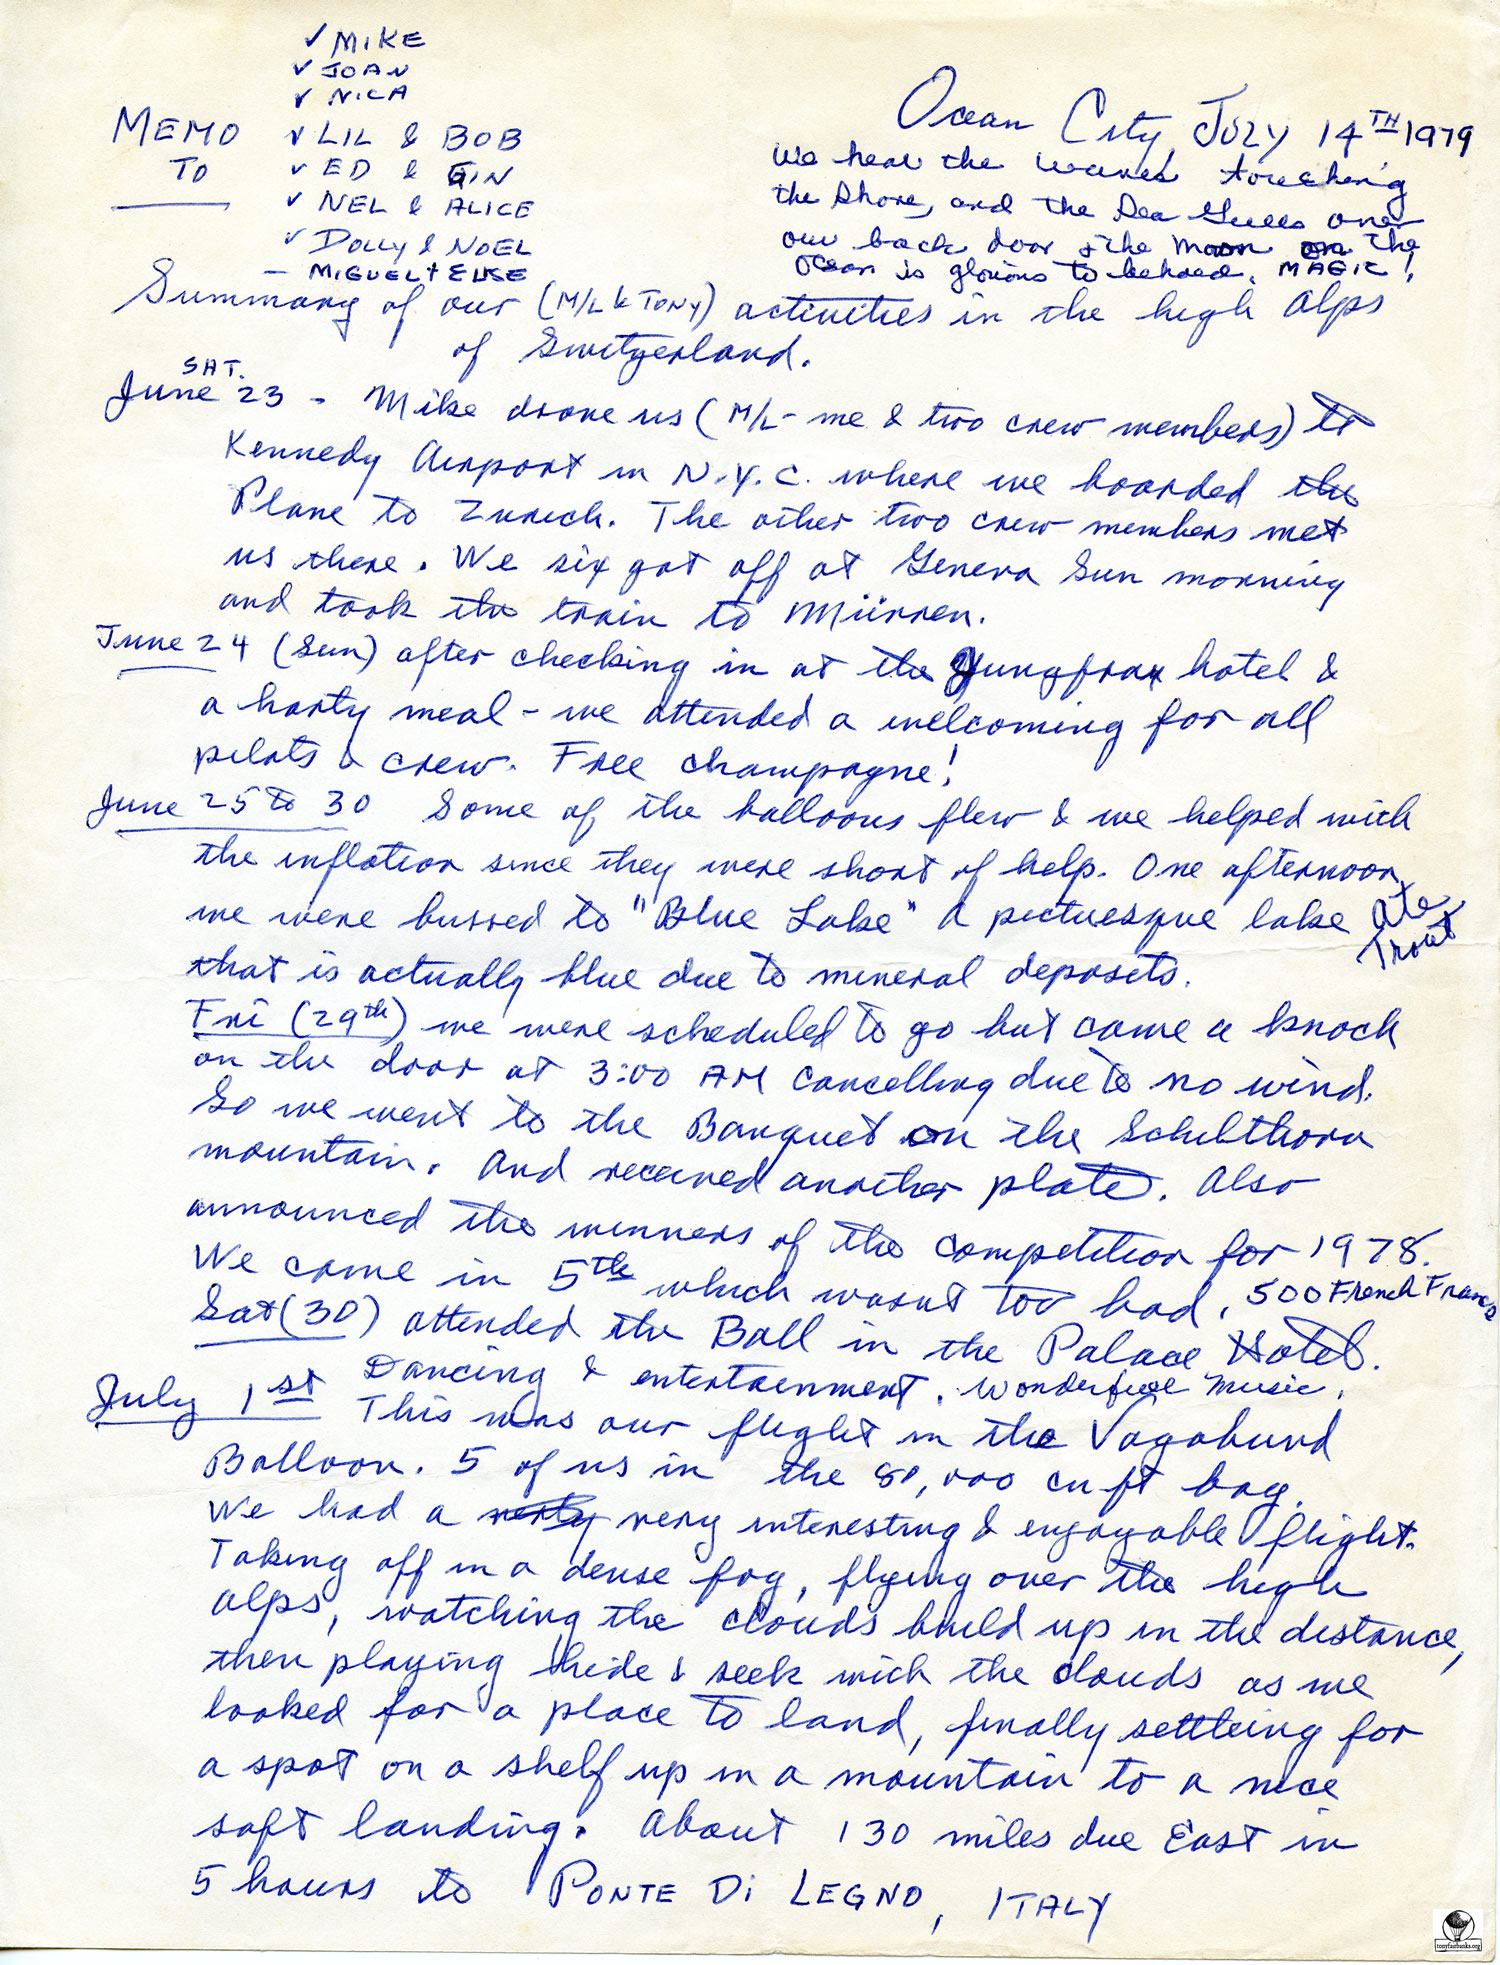 ✓ MIKE
✓ JOAN
✓ NICA
MEMO
TO
✓ LIL & BOB
✓ ED & GIN
✓ NEL & ALICE
✓ DOLLY & NOEL
– MIGUEL + ELKE
Ocean City, JULY 14TH 1979
We hear the waves touching
the shore, and the Sea Gulls over
our back door & the moon on the
Ocean is glorious to behold. MAGIC!
Summary of our (M/L & TONY) activities in the high Alps
of Switzerland.
SAT.
June 23 - Mike drove us (M/L - me & two crew members) to
Kennedy Airport in N.Y.C. where we boarded the
Plane to Zurich. The other two crew members met
us there. We six got off at Geneva Sun morning
and took the train to Mürren.
June 24 (Sun) after checking in at the Jungfrau hotel &
a harty meal - we attended a welcoming for all
pilots & crew. Free champagne!
June 25 to 30 Some of the balloons flew & we helped with
the inflation since they were short of help. One afternoon
we were bussed to "Blue Lake" a picturesque lake
Ate
Trout
that is actually blue due to mineral deposits.
Fri (29th) we were scheduled to go but came a knock
on the door at 3:00 AM cancelling due to no wind.
So we went to the Banquet on the Schilthorn
mountain. And received another plate. Also
announced the winners of the competition for 1978.
We came in 5th which wasnt too bad. 500 French Francs
Sat (30) attended the Ball in the Palace Hotel.
Dancing & entertainment. Wonderful Music.
July 1st This was our flight in the Vagabund
Balloon. 5 of us in the 80,000 cu ft bag.
We had a very interesting & enjoyable flight.
Taking off in a dense fog, flying over the high
alps, watching the clouds build up in the distance,
then playing hide & seek with the clouds as we
looked for a place to land, finally settling for
a spot on a shelf up in a mountain to a nice
soft landing. About 130 miles due East in
5 hours to PONTE Di LEGNO, ITALY
tonyfairbanks.org